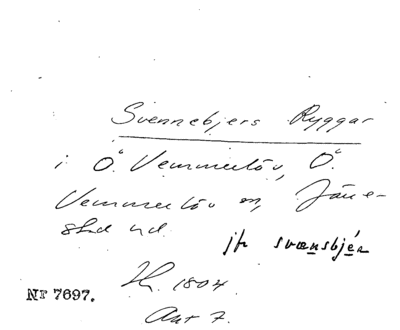 Svennebjers Ryggar
i Ö. Vemmerlöv, Ö.
Vemmerlöv sn, Järre-
stad hd.
jfr svænsbjér
Nr 7697.
Akt 7.
1804.